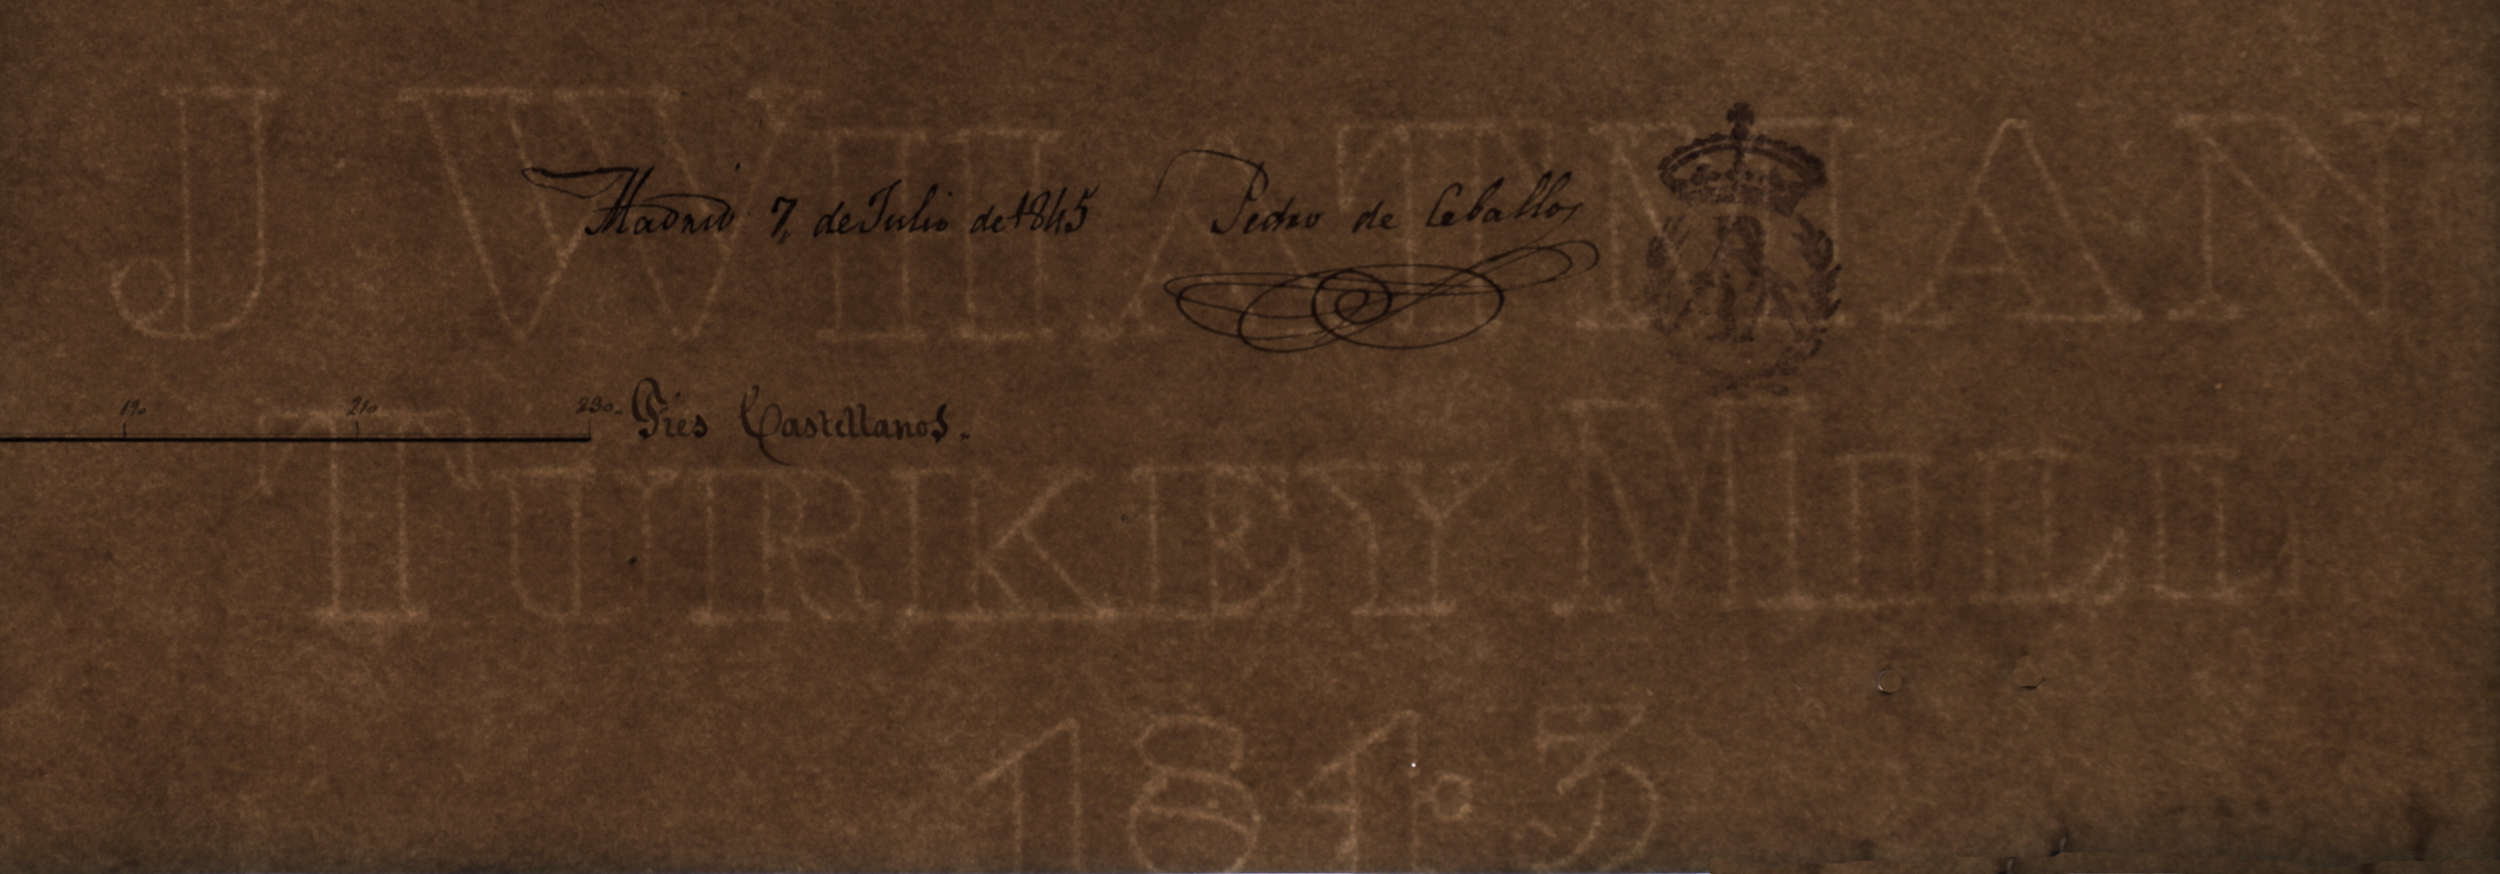 J WHATMAN
Madrid 7, de Julio de 1845 Pedro de Ceballos
190 210 230. Pies Castellanos.
TURKEY MILL
1843